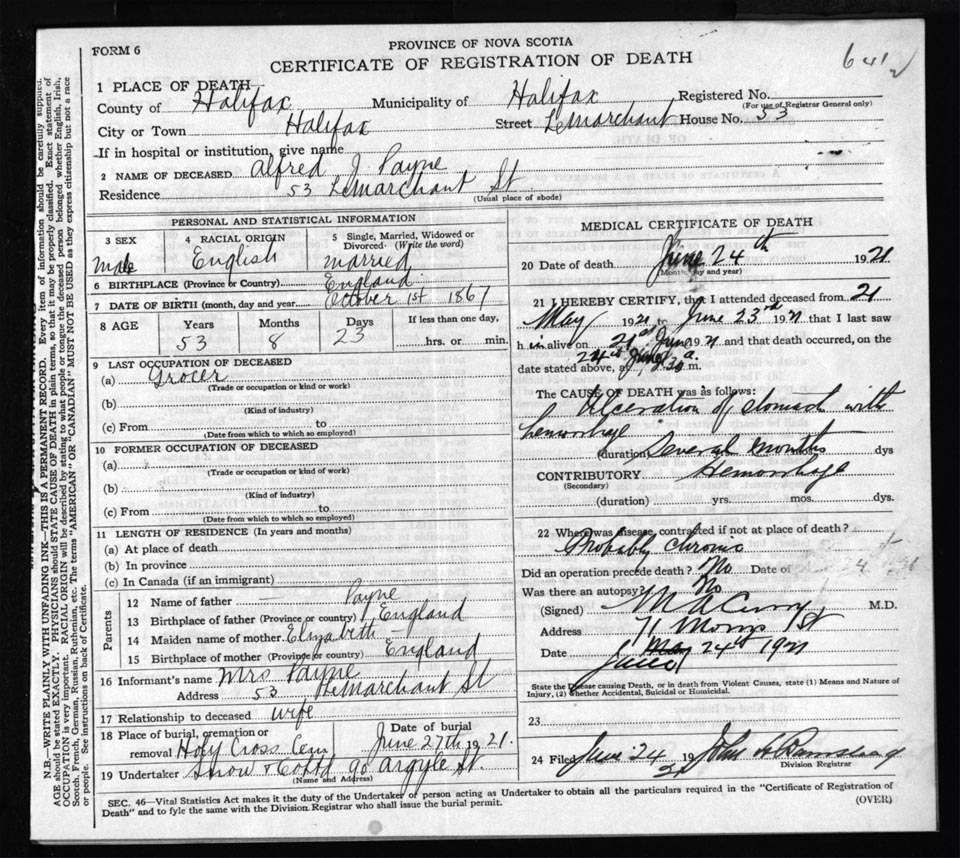 FORM 6
PROVINCE OF NOVA SCOTIA
CERTIFICATE OF REGISTRATION OF DEATH
1 PLACE OF DEATH
County of Halifax Municipality of Halifax Registered No.
(For use of Registrar General only)
City or Town Halifax Street LeMarchant House No. 53
If in hospital or institution, give name
2 NAME OF DECEASED Alfred J. Payne
Residence 53 LeMarchant St
(Usual place of abode)
PERSONAL AND STATISTICAL INFORMATION
3 SEX 4 RACIAL ORIGIN 5 Single, Married, Widowed or Divorced. (Write the word)
Male English married
6 BIRTHPLACE (Province or Country) England
7 DATE OF BIRTH (month, day and year) October 1st 1867
8 AGE Years Months Days If less than one day,
53 8 23 hrs. or min.
9 LAST OCCUPATION OF DECEASED
(a) Grocer
(Trade or occupation or kind of work)
(b)
(Kind of industry)
(c) From to
(Date from which to which so employed)
10 FORMER OCCUPATION OF DECEASED
(a)
(Trade or occupation or kind of work)
(b)
(Kind of industry)
(c) From to
(Date from which to which so employed)
11 LENGTH OF RESIDENCE (In years and months)
(a) At place of death
(b) In province
(c) In Canada (if an immigrant)
Parents
12 Name of father Payne
13 Birthplace of father (Province or country) England
14 Maiden name of mother Elizabeth -
15 Birthplace of mother (Province or country) England
16 Informant's name Mrs Payne
Address 53 LeMarchant St
17 Relationship to deceased wife
18 Place of burial, cremation or removal Holy Cross Cem Date of burial June 27th 1921.
19 Undertaker Snow & Co Ltd 90 Argyle St.
(Name and Address)
MEDICAL CERTIFICATE OF DEATH
20 Date of death June 24th 1921
(Month, day and year)
21 I HEREBY CERTIFY, that I attended deceased from 21
May 1921 to June 23rd 1921 that I last saw
him alive on 21st June 1921 and that death occurred, on the
date stated above, at 24th June a. m.
The CAUSE OF DEATH was as follows:
Ulceration of stomach with
hemorrhage
(duration) Several months dys
CONTRIBUTORY Hemorrhage
(Secondary)
(duration) yrs. mos. dys.
22 Where was disease contracted if not at place of death?
Probably chronic
Did an operation precede death? No Date of
Was there an autopsy? No
(Signed) M.D.
Address 71 Morris St
Date May 24th 1921
June
State the Disease causing Death, or in death from Violent Causes, state (1) Means and Nature of
Injury, (2) Whether Accidental, Suicidal or Homicidal.
23
24 Filed June 24 1921 John
Division Registrar
SEC. 46—Vital Statistics Act makes it the duty of the Undertaker or person acting as Undertaker to obtain all the particulars required in the "Certificate of Registration of
Death" and to fyle the same with the Division Registrar who shall issue the burial permit.
(OVER)
N.B.—WRITE PLAINLY WITH UNFADING INK—THIS IS A PERMANENT RECORD. Every item of information should be carefully supplied.
AGE should be stated EXACTLY. PHYSICIANS should STATE CAUSE OF DEATH in plain terms, so that it may be properly classified. Exact statement of
OCCUPATION is very important. RACIAL ORIGIN will be described by stating to what people or tongue the deceased person belonged whether English, Irish,
Scotch, French, German, Russian, Ruthenian, etc. The terms "AMERICAN" or "CANADIAN" MUST NOT BE USED as they express citizenship but not a race
or people. See instructions on back of Certificate.